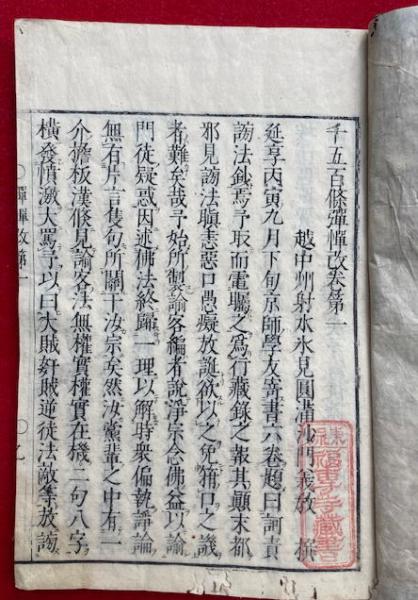 千五百條彈憚改卷第一
越中州射水氷見圓滿沙門義教 撰
延享丙寅九月下旬京師學友寄書六卷題曰訶責
謗法鈔焉予取而電矚之爲行藏錄之報其顚末都
邪見謗法瞋恚惡口愚癡放誕欲以之免猶口之譏
者難矣哉予始所製諭客編者說淨宗念佛益以諭
門徒疑惑因述佛法終歸一理以解時輩偏執諍論
無有片言隻句所關干汝宗矣然汝黨輩之中有一
介擔板漢倏見諭客法無權實權實在機二句八字
橫發憤激大罵予以曰大賊奸賊逆徒法敵等教謗
彈憚改第一
藏書